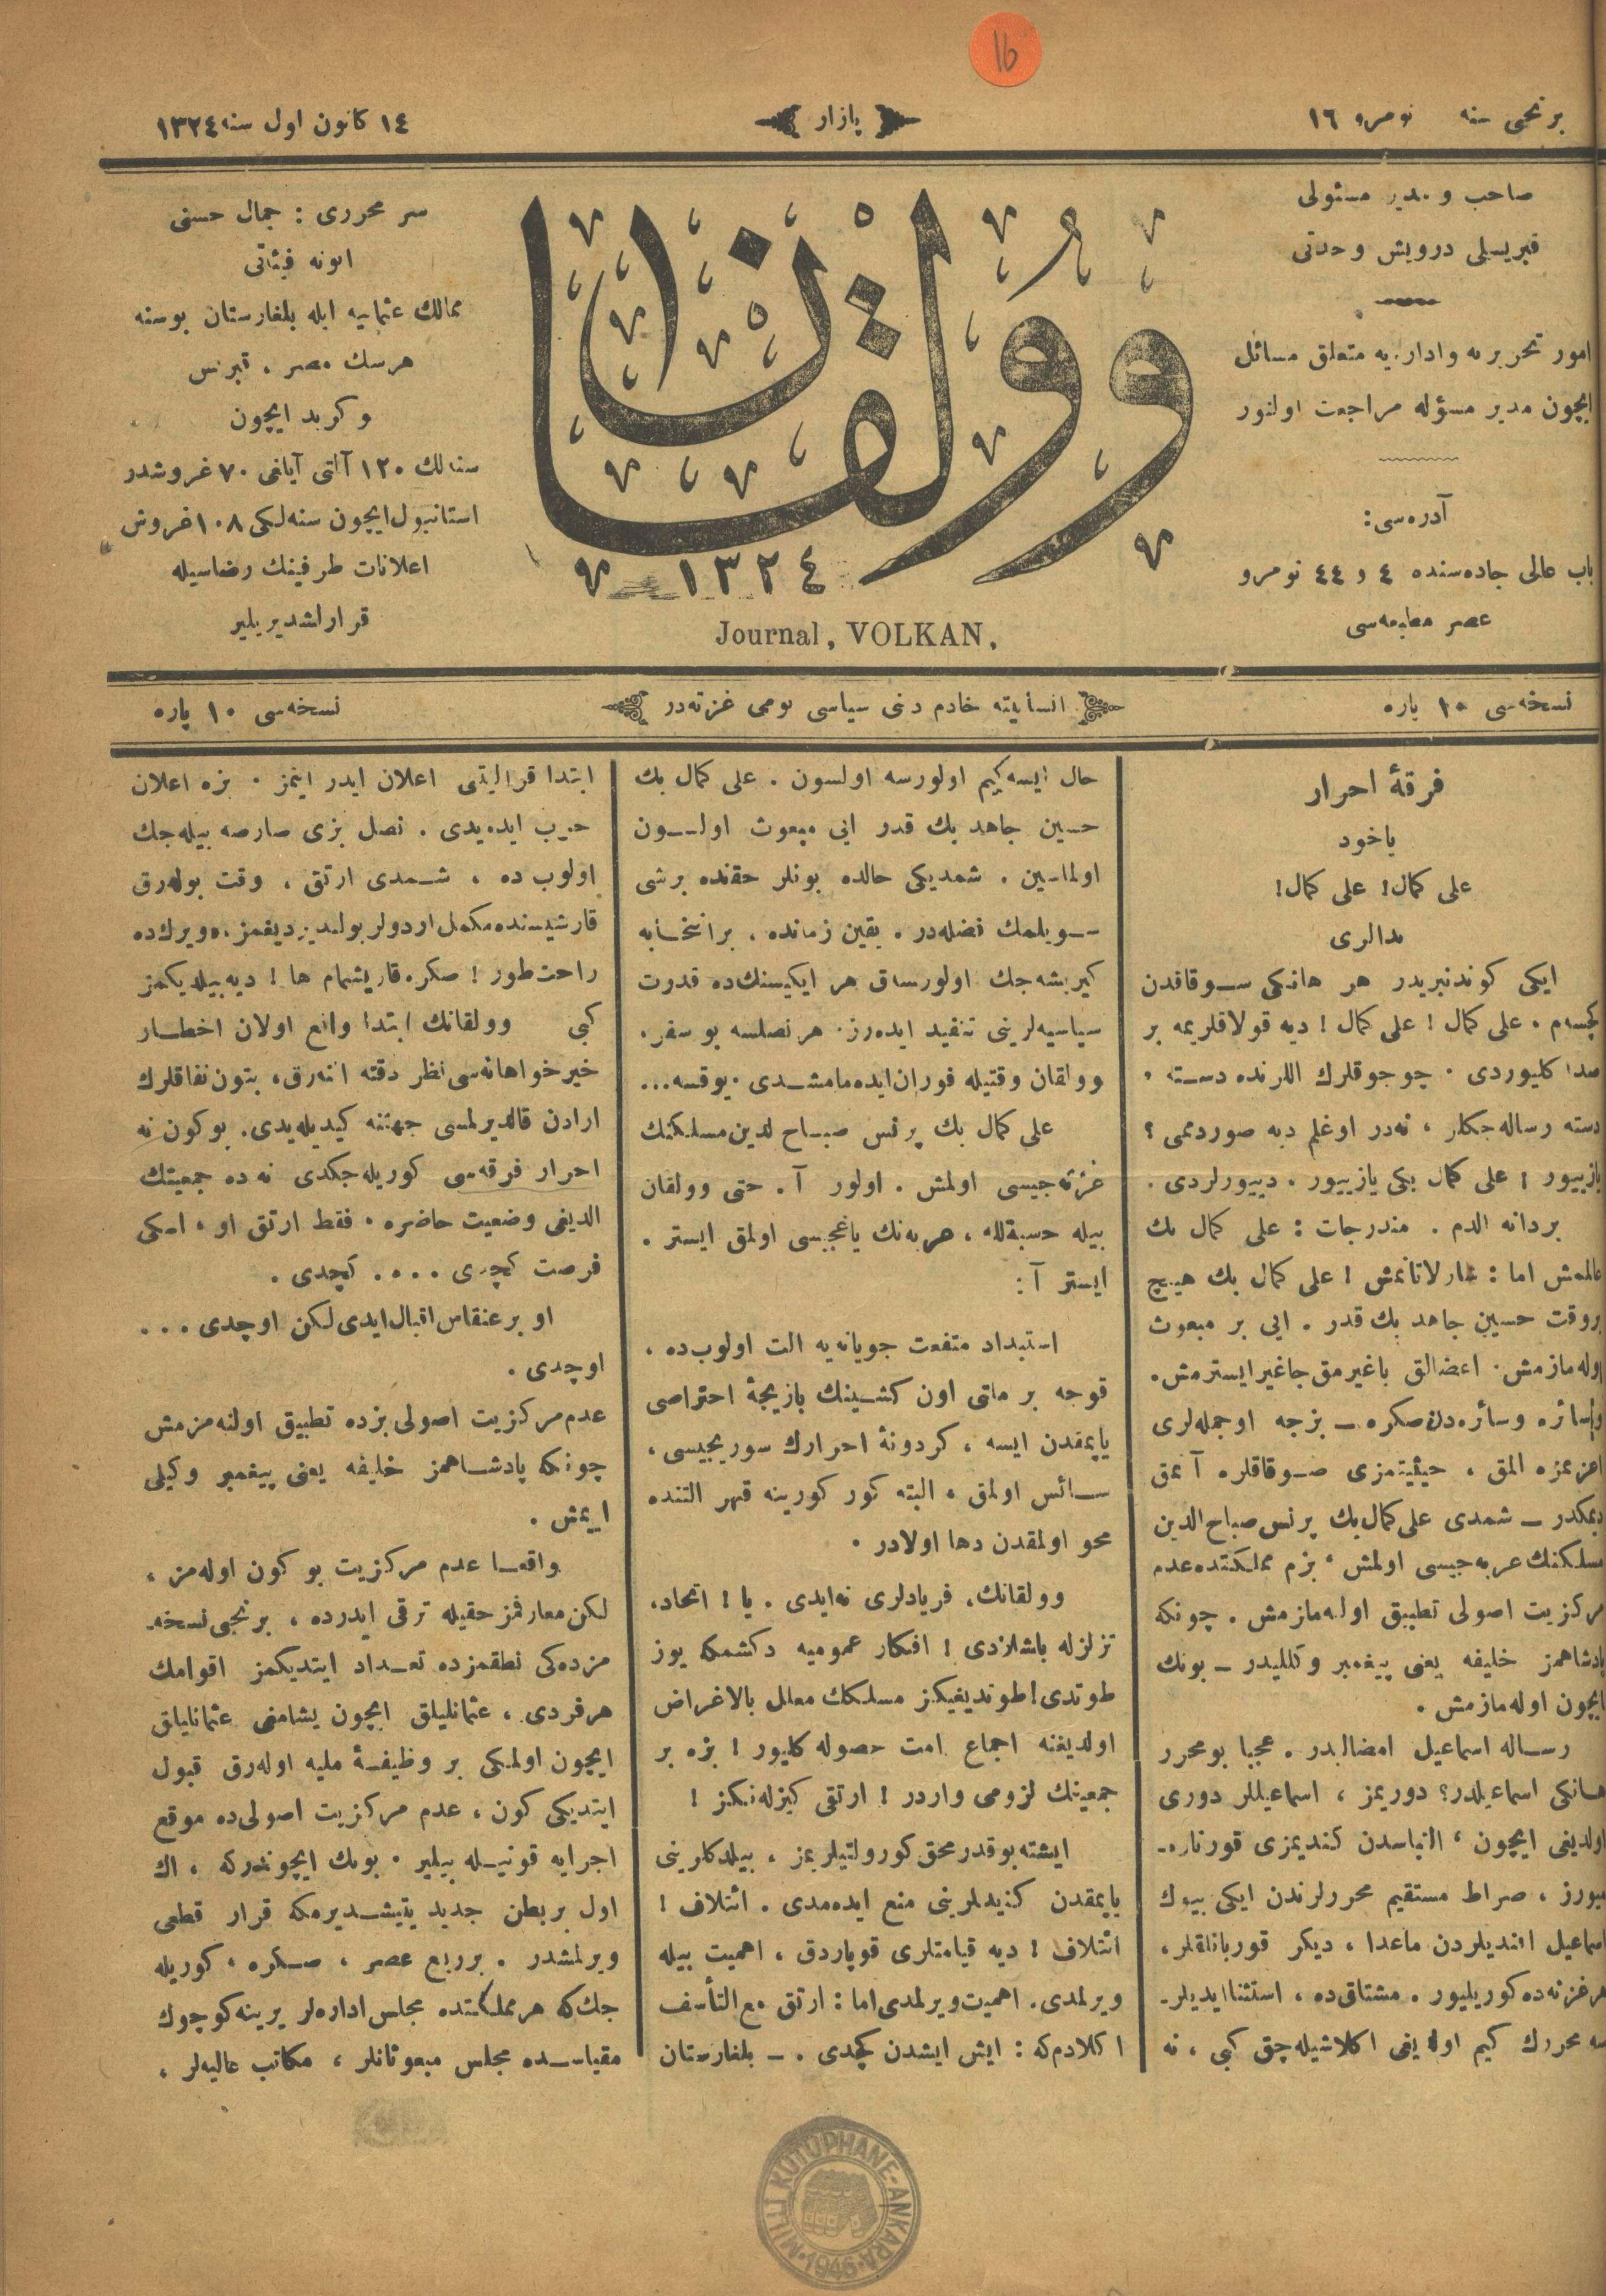 16
برنجی سنه نومرو ١٦
پازار
١٤ كانون اول سنه ١٣٢٤
صاحب و مدير مسئولی
قبريسلی درويش وحدتی
امور تحريريه واداريه متعلق مسائل
ايچون مدير مسؤله مراجعت اولنور
آدره‌سی:
باب عالی جاده‌سنده ٤ و ٤٤ نومرو
عصر مطبعه‌سی
وولقان
١٣٢٤
Journal, VOLKAN,
سر محرری : جمال حسنی
ابونه فيئاتی
ممالك عثمانيه ايله بلغارستان بوسنه
هرسك مصر ، قبرس
و كريد ايچون
سنه‌لك ١٢٠ آلتی آيلغی ٧٠ غروشدر
استانبول ايچون سنه‌لكی ١٠٨ غروش
اعلانات طرفينك رضاسيله
قرارلشديريلير
نسخه‌سی ١٠ پاره
انسانيته خادم دينی سياسی يومی غزته‌در
نسخه‌سی ١٠ پاره
فرقهٔ احرار
ياخود
علی كمال! علی كمال!
ندالری
ايكی كوندنبريدر هر هانكی سوقاقدن
كچسه‌م . علی كمال ! علی كمال ! ديه قولاقلريمه بر
صدا كليوردی . چوجوقلرك اللرنده دسته ،
دسته رساله‌جكلر ، نه‌در اوغلم ديه صوردممی ؟
يازييور ! علی كمال بكی يازييور . ديبيورلردی .
بردانه الدم . مندرجات : علی كمال بك
عالمه‌ش اما : شارلاتانمش ! علی كمال بك هيچ
بروقت حسين جاهد بك قدر . ايی بر مبعوث
اوله‌مازمش . اعضالق باغيرمق جاغير ايسترمش .
وسائره وسائره‌دن صكره ـ بزجه اوجمله‌لری
اغزيمزه المق ، حيثيتمزی صوقاقلره آتمق
ديمكدر ـ شمدی علی كمال بك پرنس صباح الدين
مسلكنك عربه‌جيسی اولمش ، بزم مملكتده عدم
مركزيت اصولی تطبيق اوله‌مازمش . چونكه
پادشاهمز خليفه يعنی پيغمبر وكليدر ـ بونك
ايچون اوله‌مازمش .
رساله اسماعيل امضاليدر . عجبا بو محرر
هانكی اسماعيلدر؟ دوريمز ، اسماعيللر دوری
اولديغی ايچون ، التباسدن كنديمزی قورتاره‌ـ
ميورز ، صراط مستقيم محررلرندن ايكی بيوك
اسماعيل افنديلردن ماعدا ، ديكر قوربانلقلر ،
هر غزته‌ده كوريليور . مشتاقی‌ده ، استثنا ايديلرـ
سه محررك كيم اولديغی اكلاشيله‌جق كبی ، نه
حال ايسه كيم اولورسه اولسون . علی كمال بك
حسين جاهد بك قدر ايی مبعوث اولسون
اولماسين . شمديكی حالده بونلر حقنده برشی
سويلمك فضله‌در . يقين زمانده . بر انتخابه
كيريشه‌جك اولورساق هر ايكيسنك‌ده قدرت
سياسيه‌لرينی تنقيد ايده‌رز . هر نصلسه بو سفر .
وولقان وقتيله فوران ايده‌مامشدی . يوقسه...
علی كمال بك پرنس صباح لدين مسلكنك
غزته‌جيسی اولمش . اولور آ . حتی وولقان
بيله حسبةلله ، هربه‌نك ياغجيسی اولمق ايستر .
ايستر آ :
استبداد منفعت جويانه‌يه الت اولوب‌ده ،
قوجه بر ملتی اون كشينك بازيچهٔ احتراصی
ياپمقدن ايسه ، كردونهٔ احرارك سوريجيسی ،
سائس اولمق ، البته كور كورينه قهر التنده
محو اولمقدن دها اولادر .
وولقانك ، فريادلری نه‌ايدی . يا ! اتحاد ،
تزلزله باشلادی ! افكار عموميه دكشمكه يوز
طوتدی ! طوتديغيكز مسلكك معلل بالاغراض
اولديغنه اجماع امت حصوله كليور ! بزه بر
جمعيتك لزومی واردر ! ارتقی كيزله‌نكز !
ايشته بوقدر محق كورولتيلريمز ، بيلدكلرينی
ياپمقدن كنديلرينی منع ايده‌مدی . ائتلاف !
ائتلاف ! ديه قيامتلری قوپاردق ، اهميت بيله
ويرلمدی . اهميت ويرلمدی اما : ارتق مع التأسف
اكلادم‌كه : ايش ايشدن كچدی . ـ بلغارستان
ابتدا قراليتی اعلان ايدر ايتمز . بزه اعلان
حرب ايده‌يدی . نصل بزی صارصه بيله‌جك
اولوب ده ، شمدی ارتق ، وقت بوله‌رق
قارشيسنده مكمل اردولر بولنديرديغمز .
راحت طور ! صكره قاريشمام ها ! ديه بيلديكمز
كبی وولقانك ابتدا واقع اولان اخطار
خيرخواهانه‌سی نظر دقته النه‌رق ، بتون نفاقلرك
ارادن قالديرلمسی جهتنه كيديله‌يدی . بوكون نه
احرار فرقه‌سی كوريله‌جكدی نه ده جمعيتك
الديغی وضعيت حاضره . فقط ارتق او ، اسكی
فرصت كچدی .... كچدی .
او بر عنقای اقبال ايدی لكن اوچدی ...
اوچدی .
عدم مركزيت اصولی بزده تطبيق اولنه‌مزمش
چونكه پادشاهمز خليفه يعنی پيغمبر وكيلی
ايمش .
واقعا عدم مركزيت بو كون اوله‌مز ،
لكن معارفمز حقيله ترقی ايدرده ، برنجی نسخه‌ـ
مزده‌كی نطقمزده تعداد ايتديكمز اقوامك
هرفردی ، عثمانليلق ايچون يشامغی عثمانليلق
ايچون اولمكی بر وظيفهٔ مليه اوله‌رق قبول
ايتديكی كون ، عدم مركزيت اصولی‌ده موقع
اجرايه قونيله بيلير . بونك ايچوندركه ، اك
اول بر بطن جديد يتيشديرمكه قرار قطعی
ويرلمشدر . برربع عصر ، صكره ، كوريله
جك‌كه هر مملكتده مجلس اداره‌لر يرينه كوچوك
مقياسده مجلس مبعوثانلر ، مكاتب عاليه‌لر ،
MİLLİ KÜTÜPHANE-ANKARA
1946